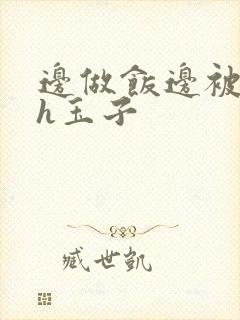 邊做飯邊被
h玉子
臧世凱